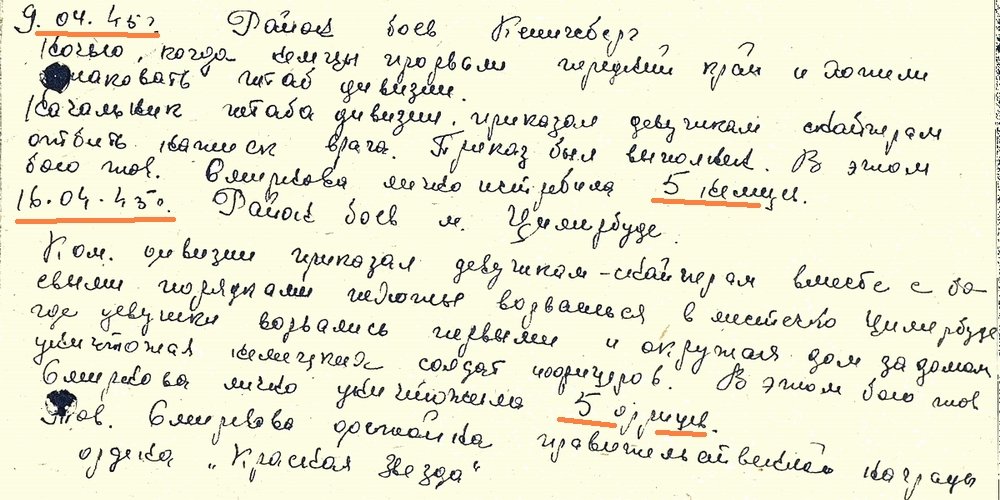 9.04.45г. Район боев Кенигсберг
Ночью, когда немцы прорвали передний край и хотели
атаковать штаб дивизии.
Начальник штаба дивизии, приказал девушкам снайперам
отбить натиск врага. Приказ был выполнен. В этом
бою тов. Смиркова лично истребила 5 немцы.
16.04.45г. Район боев м. Циммербуде.
Ком. дивизии приказал девушкам-снайперам вместе с бо-
евыми порядками пехоты ворваться в местечко Циммербуде
где девушки ворвались первыми и окружая дом за домом
уничтожая немецких солдат и офицеров. В этом бою тов
Смиркова лично уничтожила 5
Тов. Смиркова достойна правительственной награды
ордена „Красная Звезда"